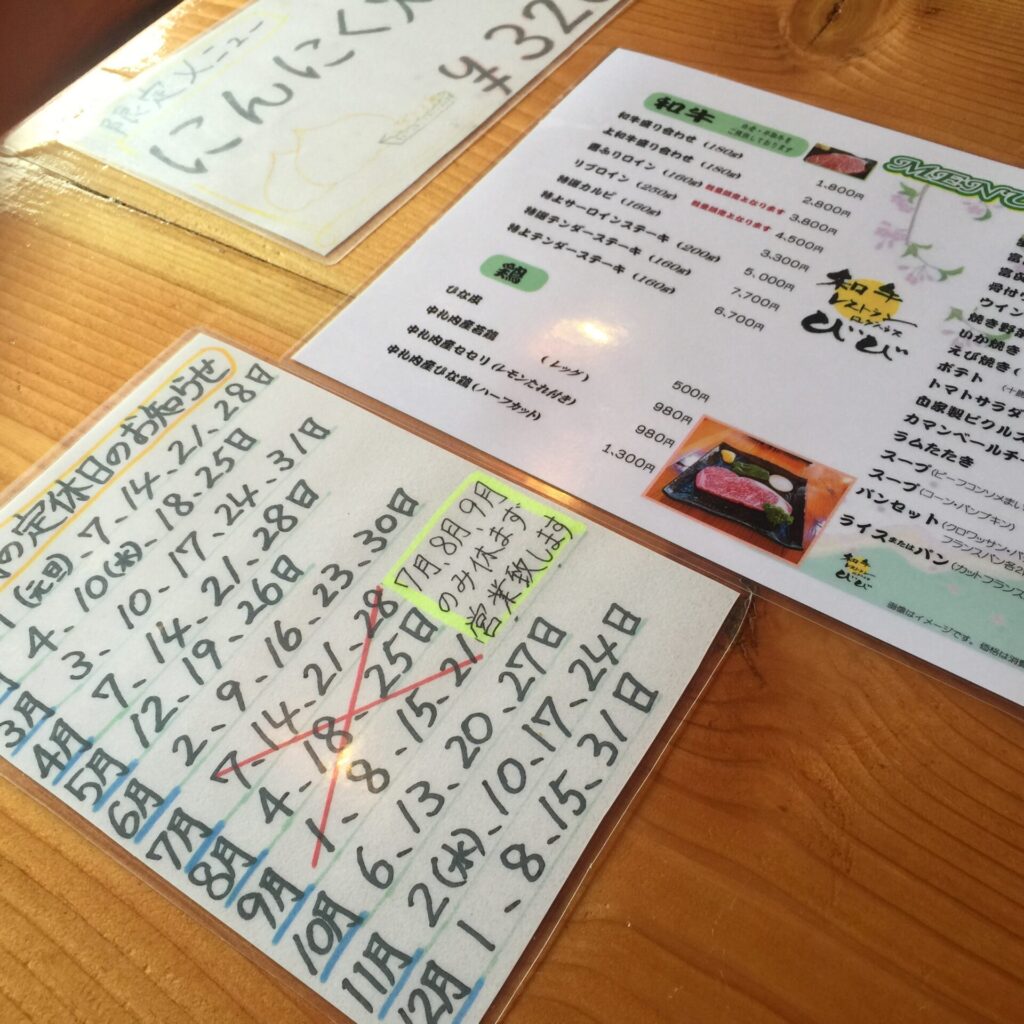 限定メニュー
にんにく
¥320
和牛
和牛盛り合わせ (180g) 1,800円
上和牛盛り合わせ (180g) 2,800円
霜ふりロイン (160g) 数量限定となります 3,800円
リブロイン (250g) 数量限定となります 4,500円
特選カルビ (160g) 3,300円
特上サーロインステーキ (200g) 5,000円
特選テンダーステーキ (160g) 7,700円
特上テンダーステーキ (160g) 6,700円
鶏
ひな皮 500円
中札内産若鶏 (レッグ) 980円
中札内産セセリ (レモンたれ付き) 980円
中札内産ひな鶏 (ハーフカット) 1,300円
MENU
和牛
レストラン
びび
ウイン
焼き野菜
いか焼き
えび焼き
ポテト
トマトサラダ
自家製ピクルス
カマンベールチー
ラムたたき
スープ (ビーフコンソメ
スープ (コーン・パンプキン)
パンセット (クロワッサン・パ
フランスパン各2
ライスまたはパン (カットフランス
和牛
びび
画像はイメージです。価格は消費
の定休日のお知らせ
1 (元旦)、7、14、21、28日
4、10(水)、18、25日
3月 3、10、17、24、31日
4月 7、14、21、28日
5月 12、19、26日
6月 2、9、16、23、30日
7月 7、14、21、28
8月 4、18、25日
9月 1、8、15、21
10月 6、13、20、27日
11月 2(水)、10、17、24日
12月 1、8、15、31日
7月、8月、9月
のみ休まず
営業致します